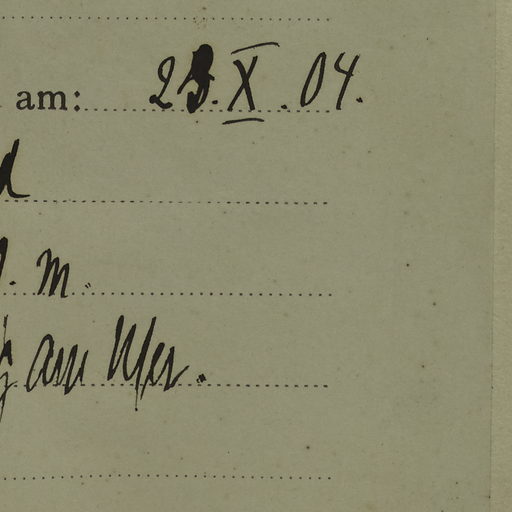 am: 23.X.04.
d
. M.
am Ufer.